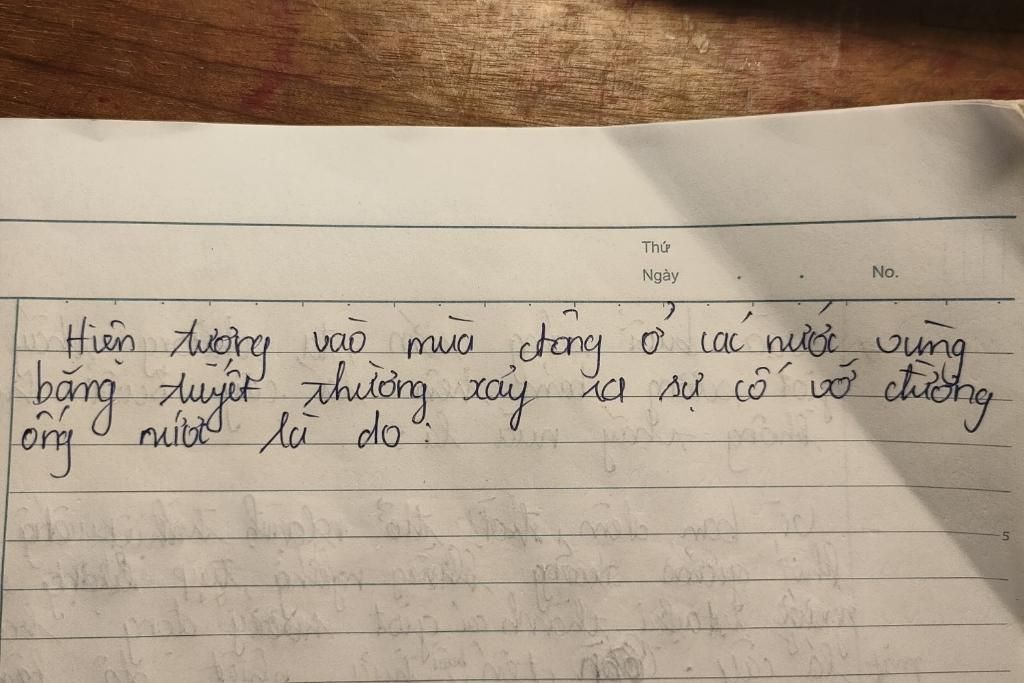 Thứ
Ngày . . No.
Hiện tượng vào mùa đông ở các nước vùng
băng tuyết thường xảy ra sự cố vỡ đường
ống nước là do:
5